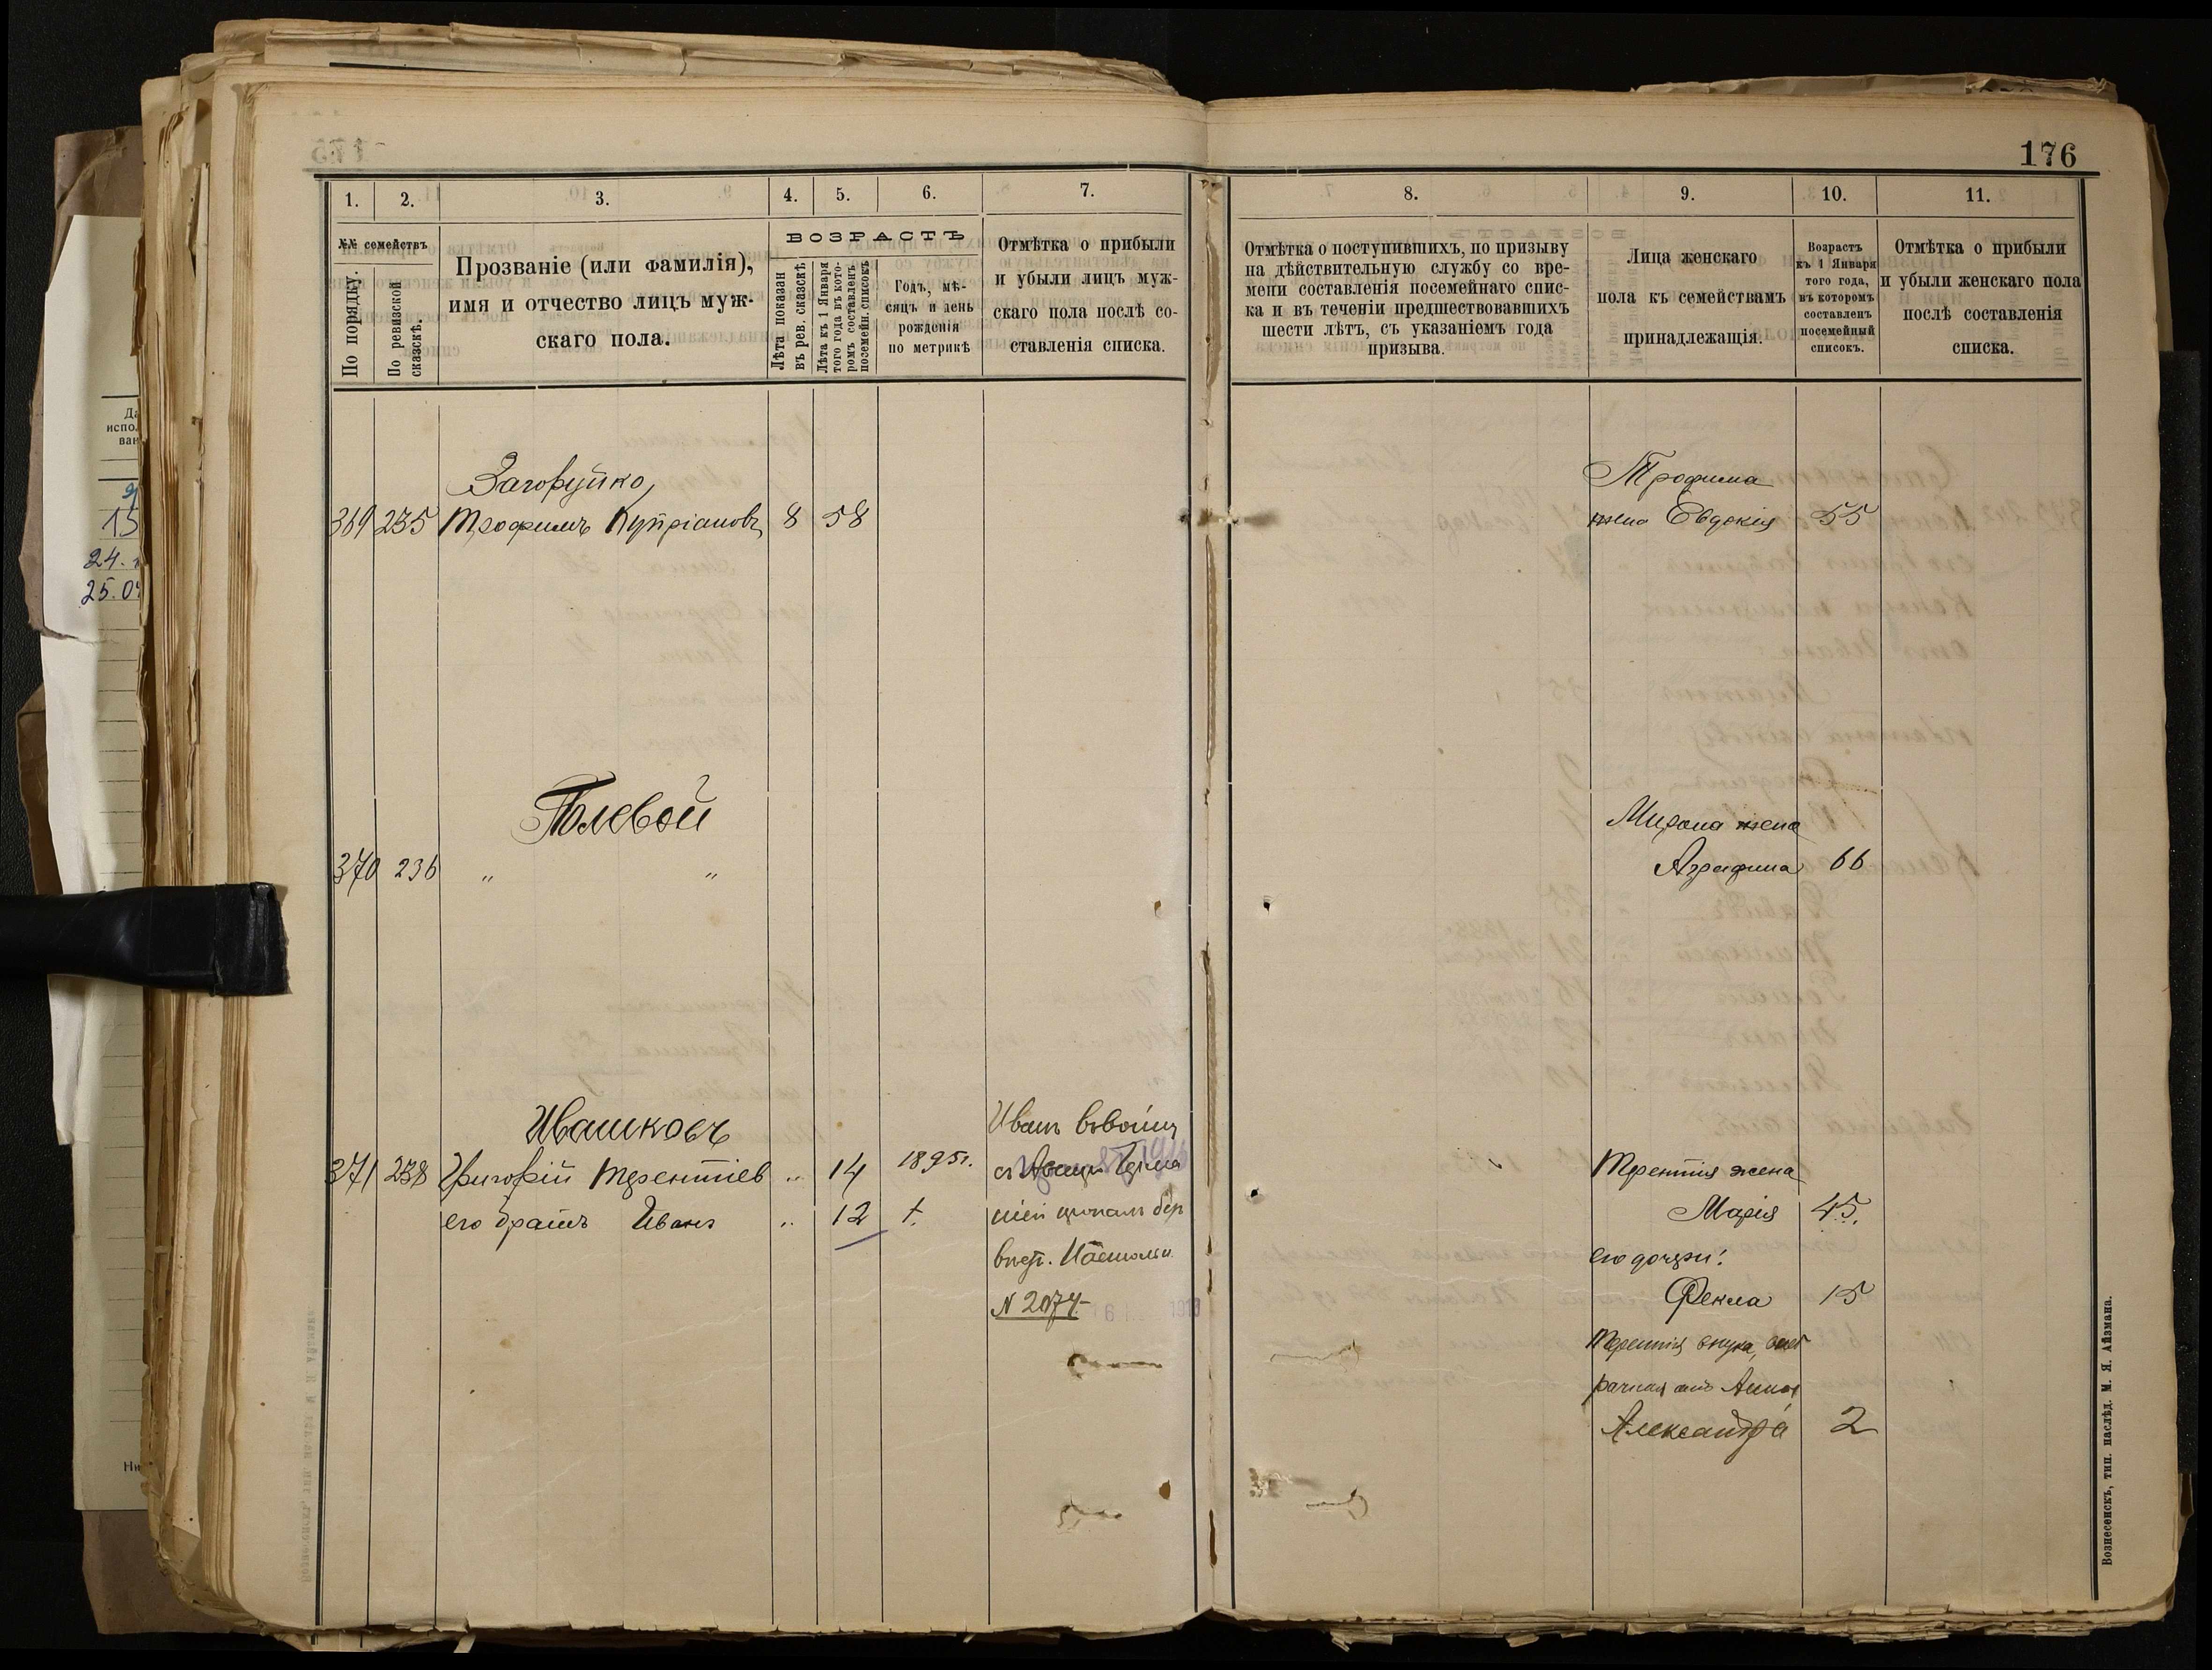 176
1.
2.
3.
4.
5.
6.
7.
№№ семействъ
По порядку.
По ревизской сказскѣ.
Прозваніе (или фамилія),
имя и отчество лицъ муж-
скаго пола.
ВОЗРАСТЪ
Лѣта показан
въ рев. сказскѣ
Лѣта къ 1 Января
того года въ кото-
ромъ составленъ
посемейн. списокъ
Годъ, мѣ-
сяцъ и день
рожденія
по метрикѣ
Отмѣтка о прибыли
и убыли лицъ муж-
скаго пола послѣ со-
ставленія списка.
8.
9.
10.
11.
Отмѣтка о поступившихъ, по призыву
на дѣйствительную службу со вре-
мени составленія посемейнаго спис-
ка и въ теченіи предшествовавшихъ
шести лѣтъ, съ указаніемъ года
призыва.
Лица женскаго
пола къ семействамъ
принадлежащія.
Возрастъ
къ 1 Января
того года,
въ которомъ
составленъ
посемейный
списокъ.
Отмѣтка о прибыли
и убыли женскаго пола
послѣ составленія
списка.
Загоруйко
369 235 Трофимъ Купріановъ 8 58
Трофима
жена Евдокія 55
Полевой
370 236 " "
Мирона жена
Аграфина 66
Ивашковъ
371 238 Григорій Терентіев " 14 1895г.
его братъ Иванъ " 12 †.
Иванъ
N 2074
Терентія жена
Марія 45.
его дочери:
Фекла 15
Терентія внука,
рачная Анны
Александра 2
Вознесенскъ, тип. наслѣд. М. Я. Айзмана.
Да
испол
ван
15
24.
25.0
Ни